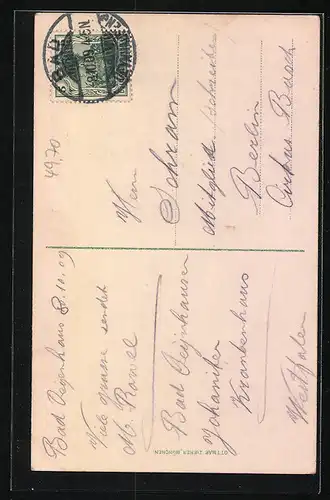 Bad Oeynhausen 8.10.09
Viele grüsse sendet
M. Rowel
Bad Oeynhausen
Johaniter
Krankenhaus
Westfalen
Herrn
Schramm
Mitglied
Berlin
Cirkus Busch
49,70
BAD
OTTMAR ZIEHER, MÜNCHEN